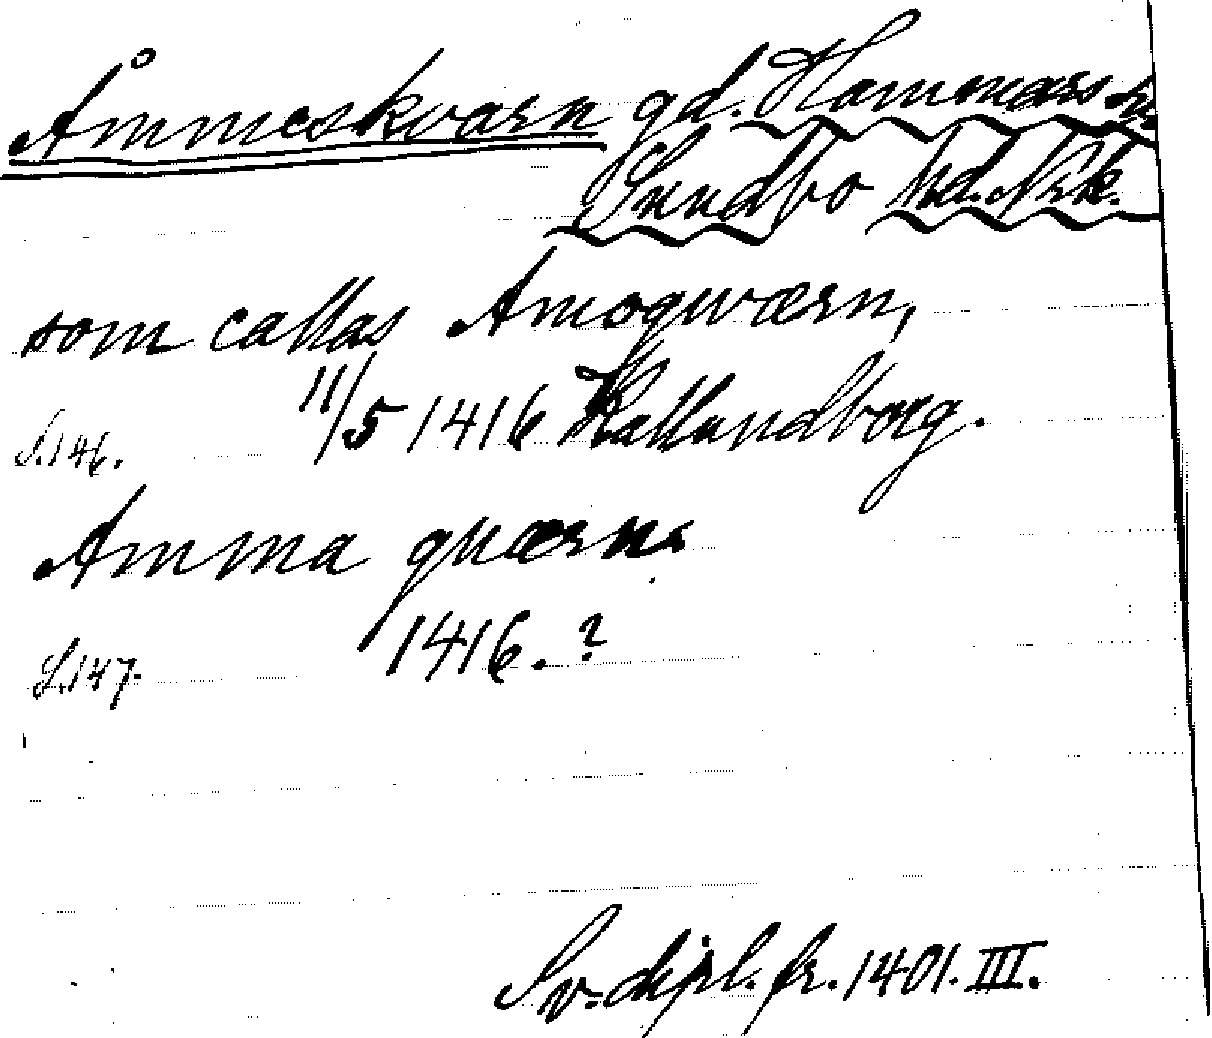 Åmmeskvarn gd. Hammars sn
Sundbo hd. Nrk.
som callas Amoqwærn,
S.146. 11/5 1416 Kallundborg.
Amma quærn.
S.147. 1416.?
Sv. dipl. fr. 1401. III.